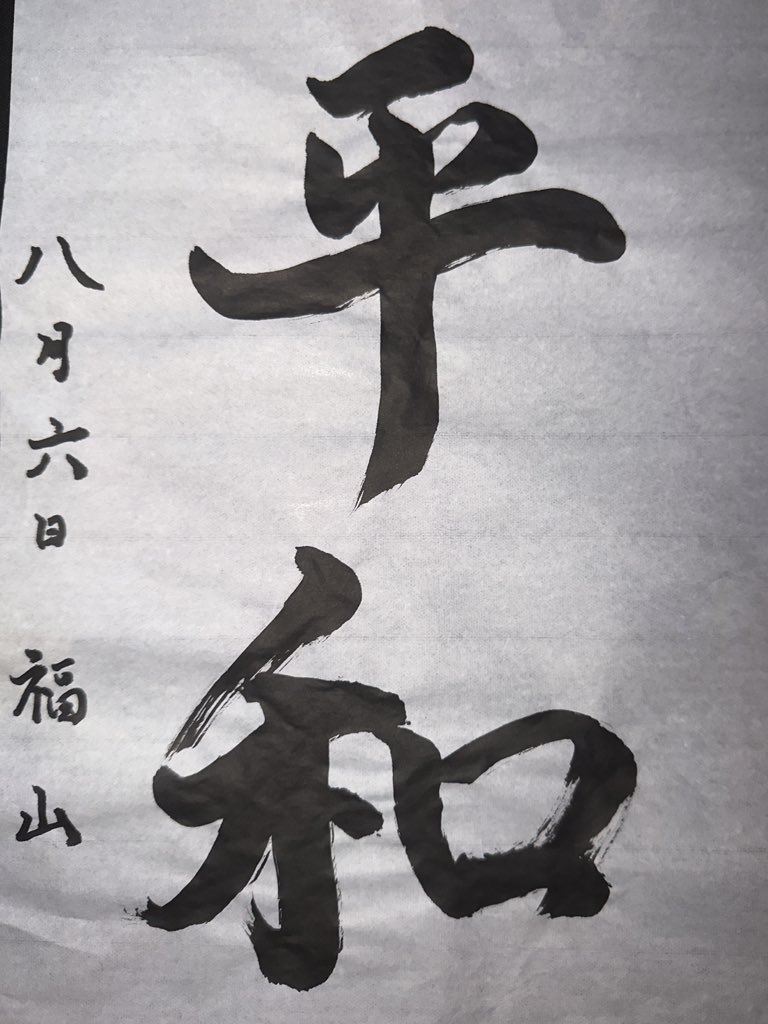 平和
八月六日 福山